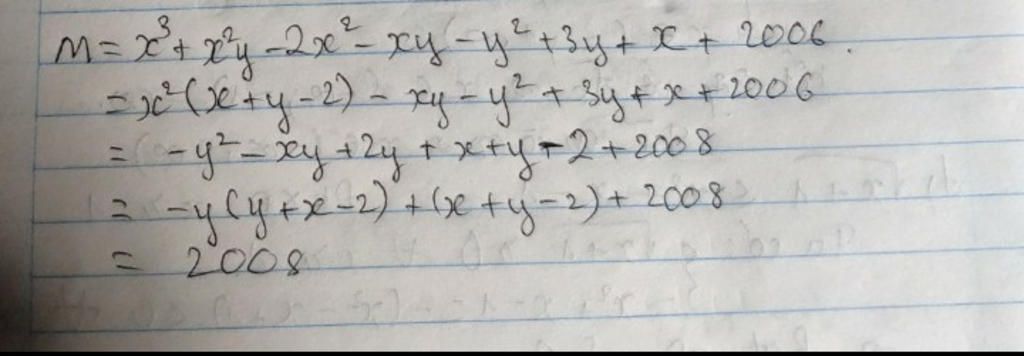 M = x³ + x²y - 2x² - xy - y² + 3y + x + 2006.
= x²(x+y-2) - xy - y² + 3y + x + 2006
= -y² - xy + 2y + x + y - 2 + 2008
= -y(y+x-2) + (x+y-2) + 2008
= 2008